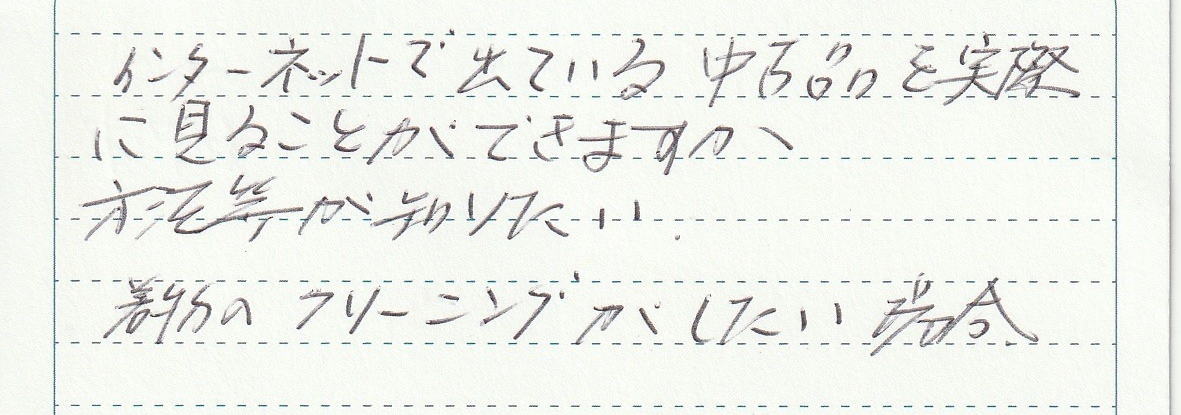 インターネットで出ている中古品を実際
に見ることができますか
方法等が知りたい.
着物のクリーニングがしたい場合